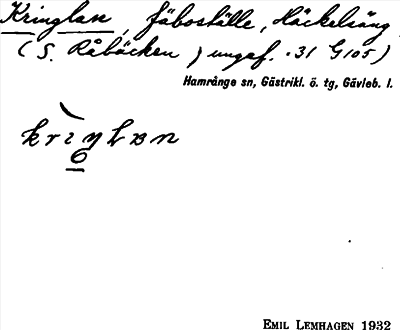 Kringlan, fäboställe, Häckelsäng
(S. Råbäcken) ungef. .31 G105)
Hamrånge sn, Gästrikl. ö. tg, Gävleb. l.
EMIL LEMHAGEN 1932